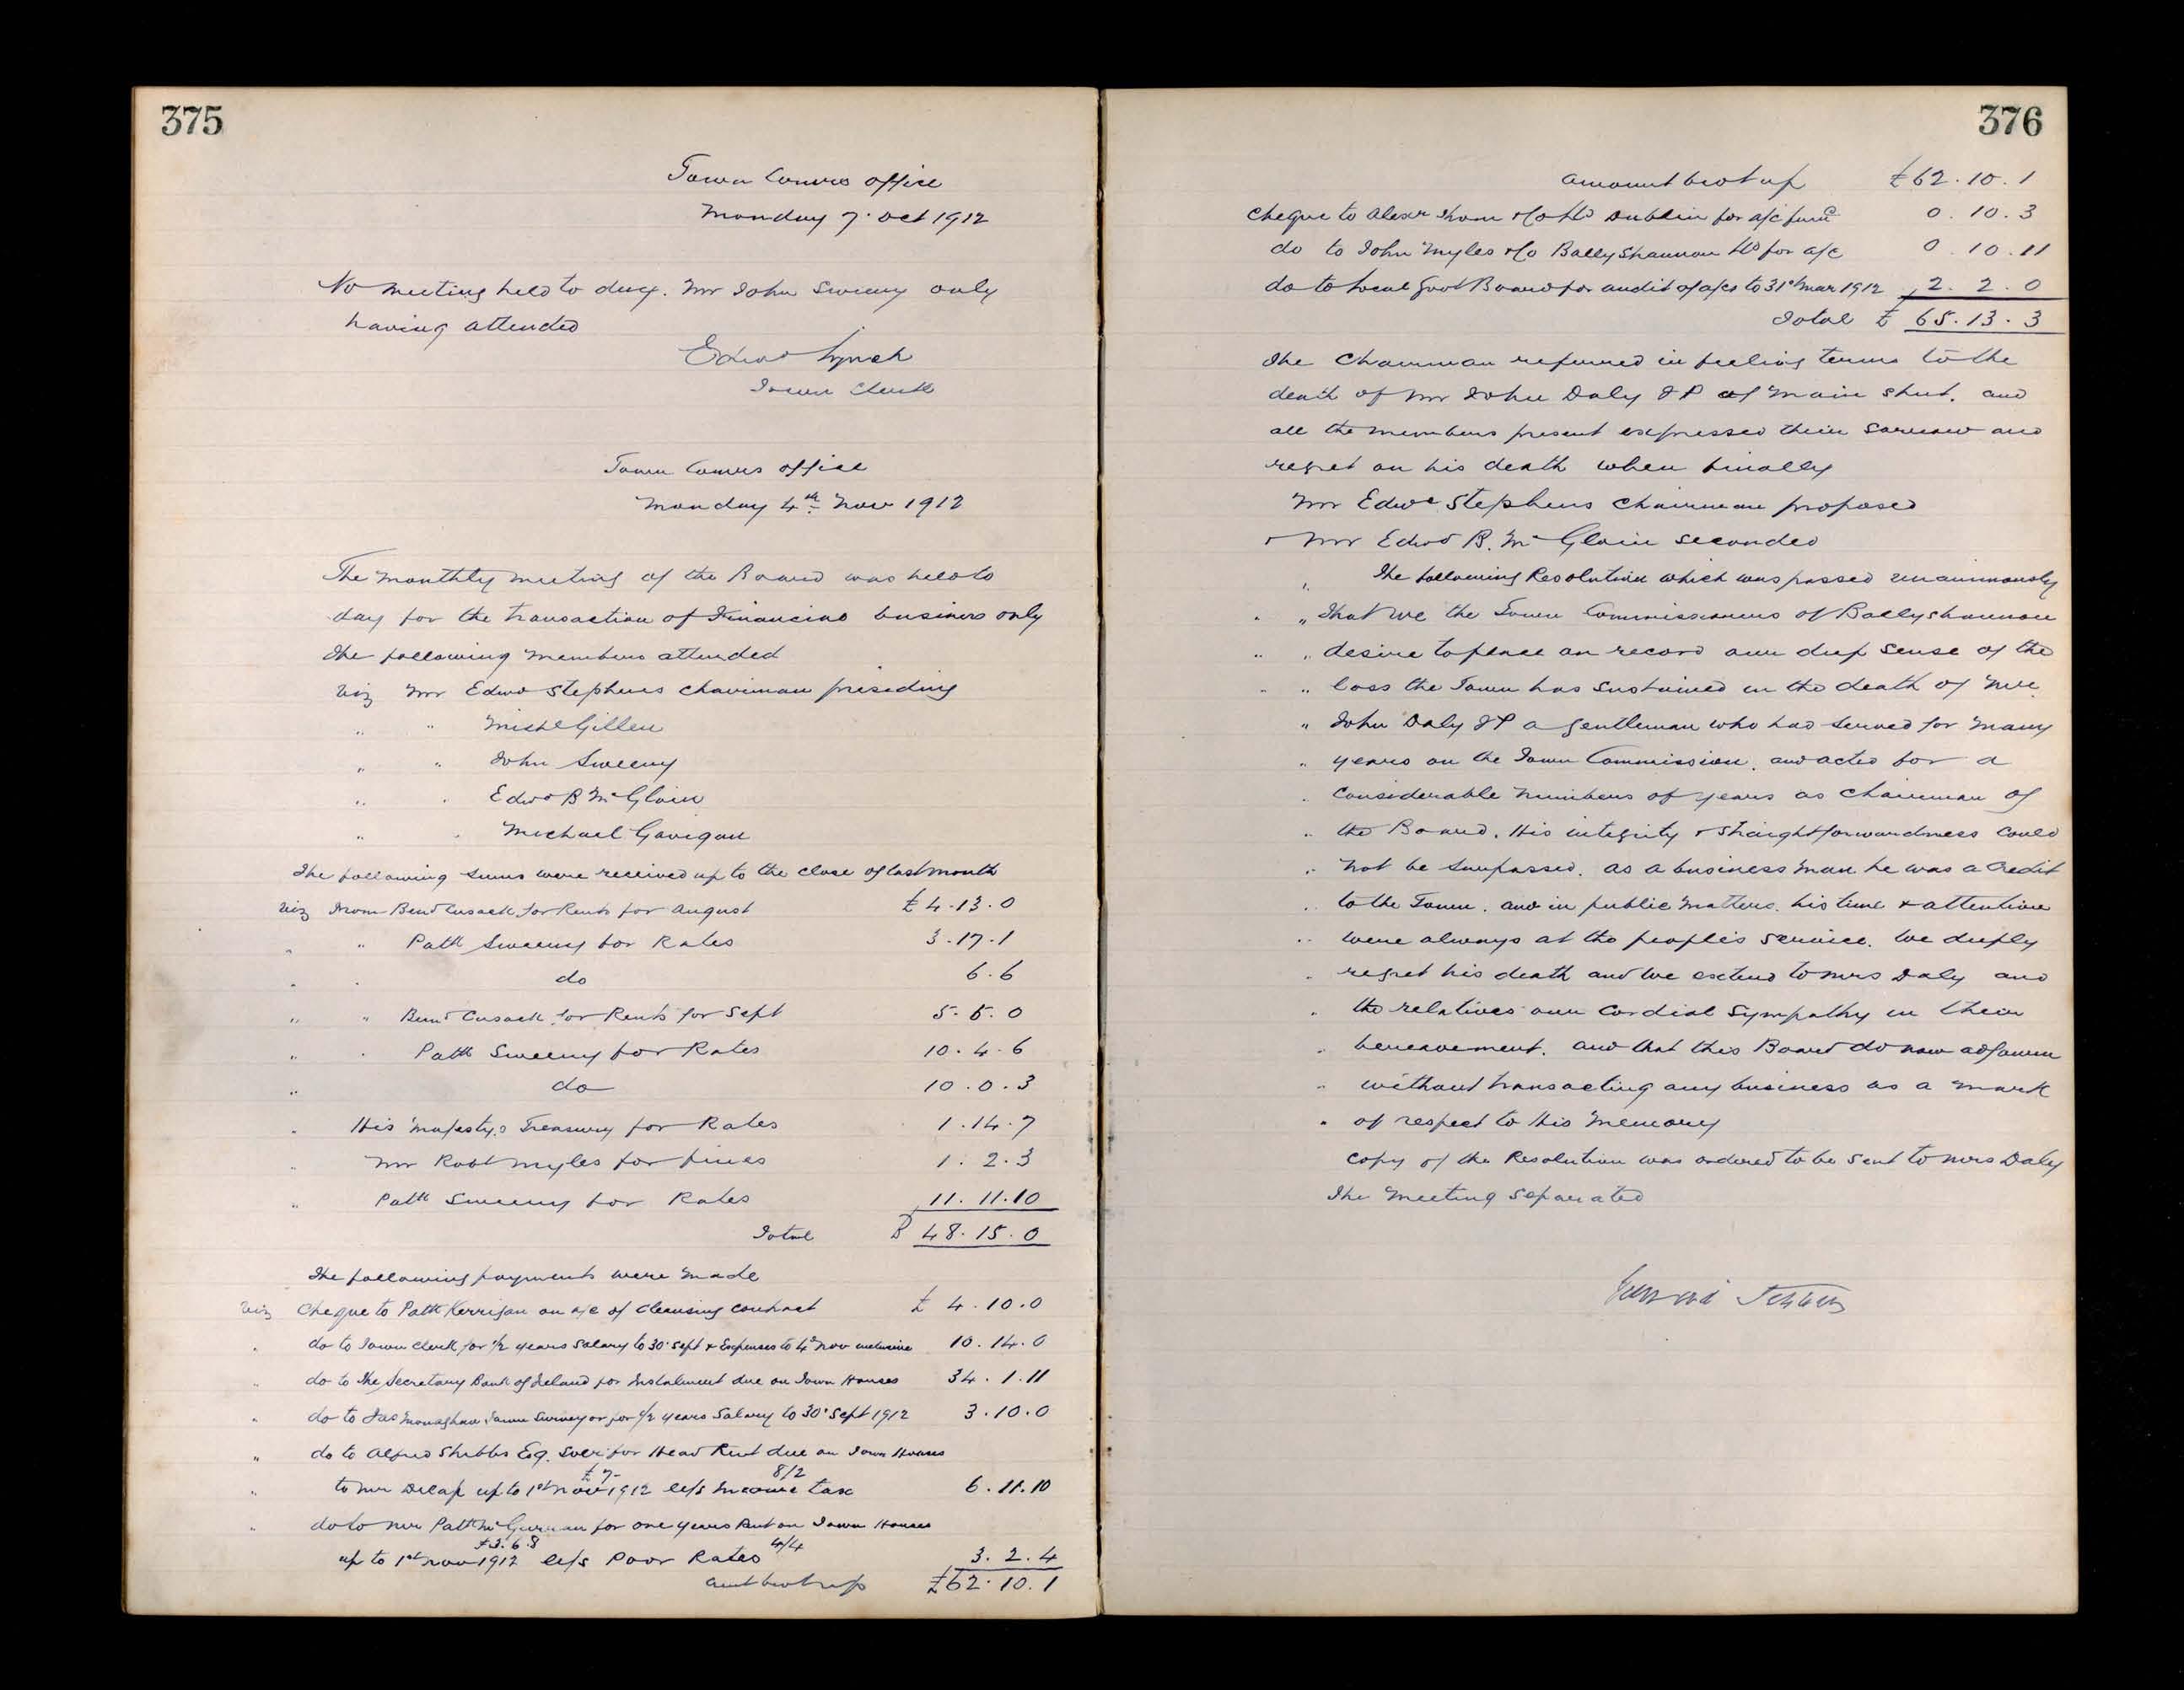 375
Town Comrs office
Monday 7. Oct 1912
No meeting held to day. Mr John Sweeny only
having attended
Edwd Lynch
Town Clerk
Town Comrs office
Monday 4th Nov 1912
The monthly meeting of the Board was held to
day for the transaction of Financial business only
The following members attended
viz Mr Edwd Stephens Chairman presiding
" " Michl Gillen
" " John Sweeny
" " Edwd B McGloin
" " Michael Gavigan
The following sums were received up to the close of last month
viz From Bernd Cusack for Rents for August £4.13.0
" " Pattk Sweeny for Rates 3.17.1
" " do 6.6
" " Bernd Cusack for Rents for Sept 5.5.0
" " Pattk Sweeny for Rates 10.4.6
" do 10.0.3
" His Majestys Treasury for Rates 1.14.7
" Mr Robt Myles for fines 1.2.3
" Pattk Sweeny for Rates 11.11.10
Total £48.15.0
The following payments were made
viz Cheque to Pattk Kerrigan on a/c of Cleansing contract £4.10.0
" do to Town Clerk for 1/2 years Salary to 30. Sept & Expenses to 4th Nov inclusive 10.14.0
" do to the Secretary Bank of Ireland for Instalment due on Town Houses 34.1.11
" do to Jas Monaghan Town Surveyor for 1/2 years Salary to 30. Sept 1912 3.10.0
" do to Alfred Stubbs Esq. Solr for Head Rent due on Town Houses
£7- 8/2
" to Mr Delap up to 1st Nov 1912 less Income tax 6.11.10
" do to Mr Pattk McGurran for one years Rent on Town Houses
£3.6.8 4/4
up to 1st Nov 1912 less Poor Rates 3.2.4
amt brot up £62.10.1
376
amount brot up £62.10.1
Cheque to Alexr Thom & Co Ltd Dublin for a/c furnd 0.10.3
do to John Myles & Co Ballyshannon Ltd for a/c 0.10.11
do to Local Govt Board for audit of a/cs to 31st Mar 1912 2.2.0
Total £65.13.3
The Chairman referred in feeling terms to the
death of Mr John Daly JP of Main Street. and
all the members present expressed their sorrow and
regret on his death when finally
Mr Edwd Stephens Chairman proposed
& Mr Edwd B. McGloin seconded
" The following Resolution which was passed unanimously
" " That we the Town Commissioners of Ballyshannon
" " desire to place on record our deep sense of the
" " loss the Town has sustained in the death of Mr
" John Daly JP a gentleman who had served for many
" years on the Town Commission. and acted for a
" considerable numbers of years as Chairman of
" the Board. His integrity & straightforwardness could
" not be surpassed. as a business man he was a Credit
" to the Town. and in public matters. his time & attention
" were always at the people's service. We deeply
" regret his death and we extend to Mrs Daly and
" the relatives our Cordial Sympathy in their
" bereavement. and that this Board do now adjourn
" without transacting any business as a mark
" of respect to His Memory
Copy of the Resolution was ordered to be sent to Mrs Daly
The Meeting separated
Edward Stephens